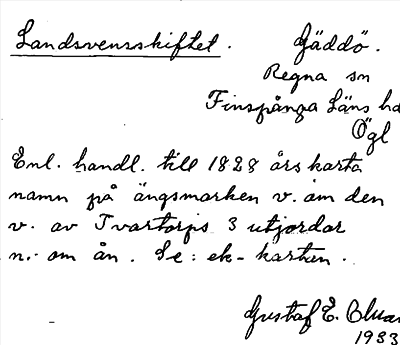 Landsvensskiftet. Gäddö.
Regna sn
Finspånga Läns hd
Ögl
Enl. handl. till 1828 års karta
namn på ängsmarken v. om den
v. av Tvartorps 3 utjordar
n. om ån. Se: ek-kartan.
Gustaf E. Blom
1933